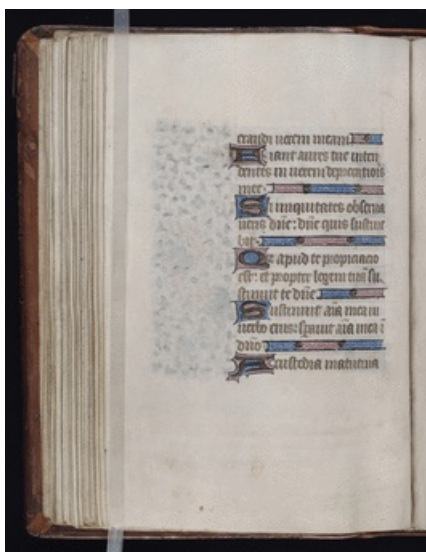 exaudi vocem meam
Fiant aures tue inten
dentes in vocem deprecationis
mee.
Si iniquitates observa
veris dñe: dñe quis sustine
bit.
Quia apud te propiciacio
est: et propter legem tuã su
stinui te dñe.
Sustinuit aĩa mea in
verbo eius: speravit aĩa mea ĩ
dño.
A custodia matutina